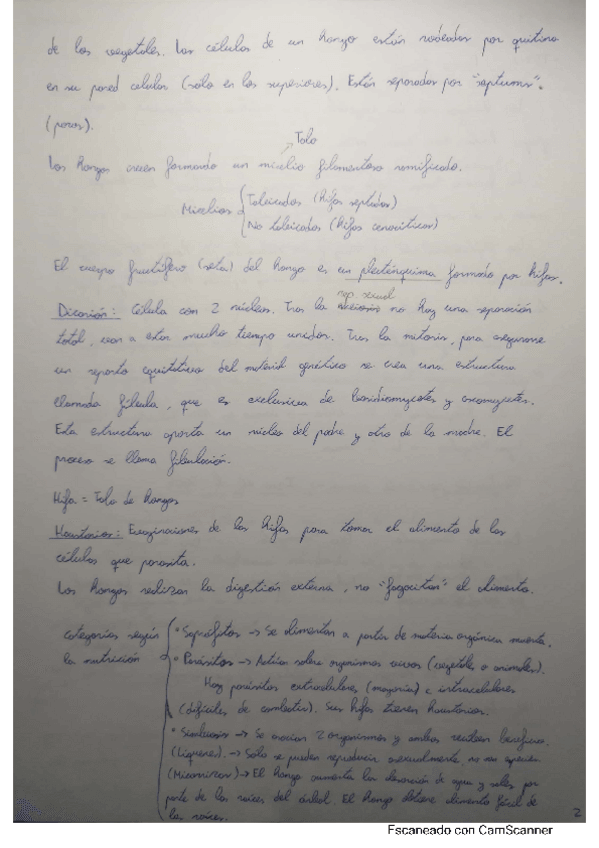 de los vegetales. Las células de un hongo están rodeadas por quitina
en su pared celular (sólo en los superiores). Están separadas por "septums".
(poros).
Talo
Los hongos crecen formando un micelio filamentoso ramificado.
Micelios
Tabicados (hifas septadas)
No tabicados (hifas cenocíticas)
El cuerpo fructífero (seta) del hongo es un plecténquima formado por hifas.
rep. sexual
Dicarión: Célula con 2 núcleos. Tras la meiosis no hay una separación
total, van a estar mucho tiempo unidos. Tras la mitosis, para asegurarse
un reparto equitativo del material genético se crea una estructura
llamada fíbula, que es exclusiva de basidiomycetes y ascomycetes.
Esta estructura aporta un núcleo del padre y otro de la madre. El
proceso se llama fibulación.
Hifa = Talo de hongos
Haustorios: Evaginaciones de las hifas para tomar el alimento de las
células que parasita.
Los hongos realizan la digestión externa, no "fagocitan" el alimento.
Categorías según
la nutrición
• Saprófitos → Se alimentan a partir de materia orgánica muerta.
• Parásitos → Actúan sobre organismos vivos (vegetales o animales).
Hay parásitos extracelulares (mayoría) e intracelulares
(difíciles de combatir). Sus hifas tienen haustorios.
• Simbiosis → Se asocian 2 organismos y ambos reciben beneficio.
(Líquenes) → Sólo se pueden reproducir asexualmente, no son especies
(Micorrizas) → El hongo aumenta la absorción de agua y sales por
parte de las raíces del árbol. El hongo obtiene alimento fácil de
las raíces.
2
Escaneado con CamScanner